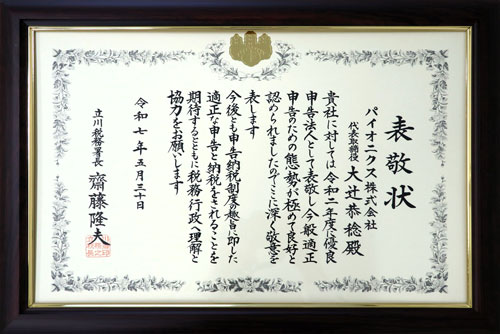 表敬状
パイオニクス株式会社
代表取締役 大辻恭稔殿
貴社に対しては令和二年度に優良
申告法人として表敬し今般適正
申告のための態勢が極めて良好と
認められましたのでここに深く敬意を
表します
今後とも申告納税制度の趣旨に即した
適正な申告と納税をされることを
期待するとともに税務行政へ理解と
協力をお願いします
令和七年五月三十日
立川税務署長 齋藤隆夫